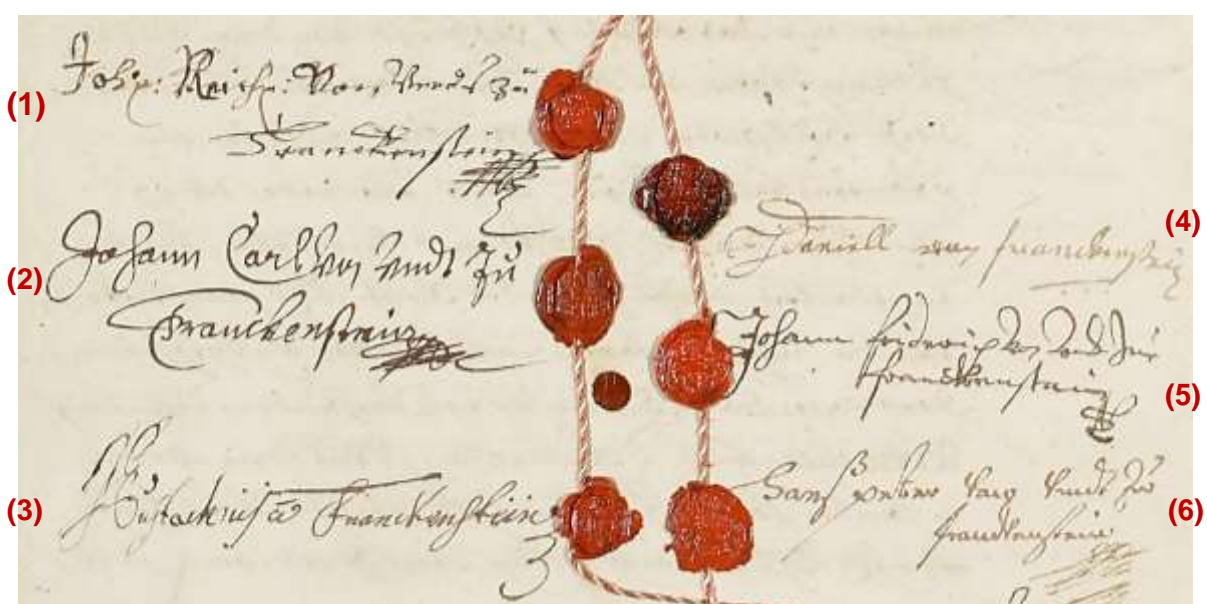 (1)
Joh: Reich: Von Vnd zu
Franckenstein
(2)
Johann Carl von vndt Zu
Franckenstein
(3)
Eustachius à Franckenstein
(4)
Daniell von franckenstein
(5)
Johann friderich von Vnd Zu
franckenstein
(6)
Hanß peter von Vndt Zu
franckenstein